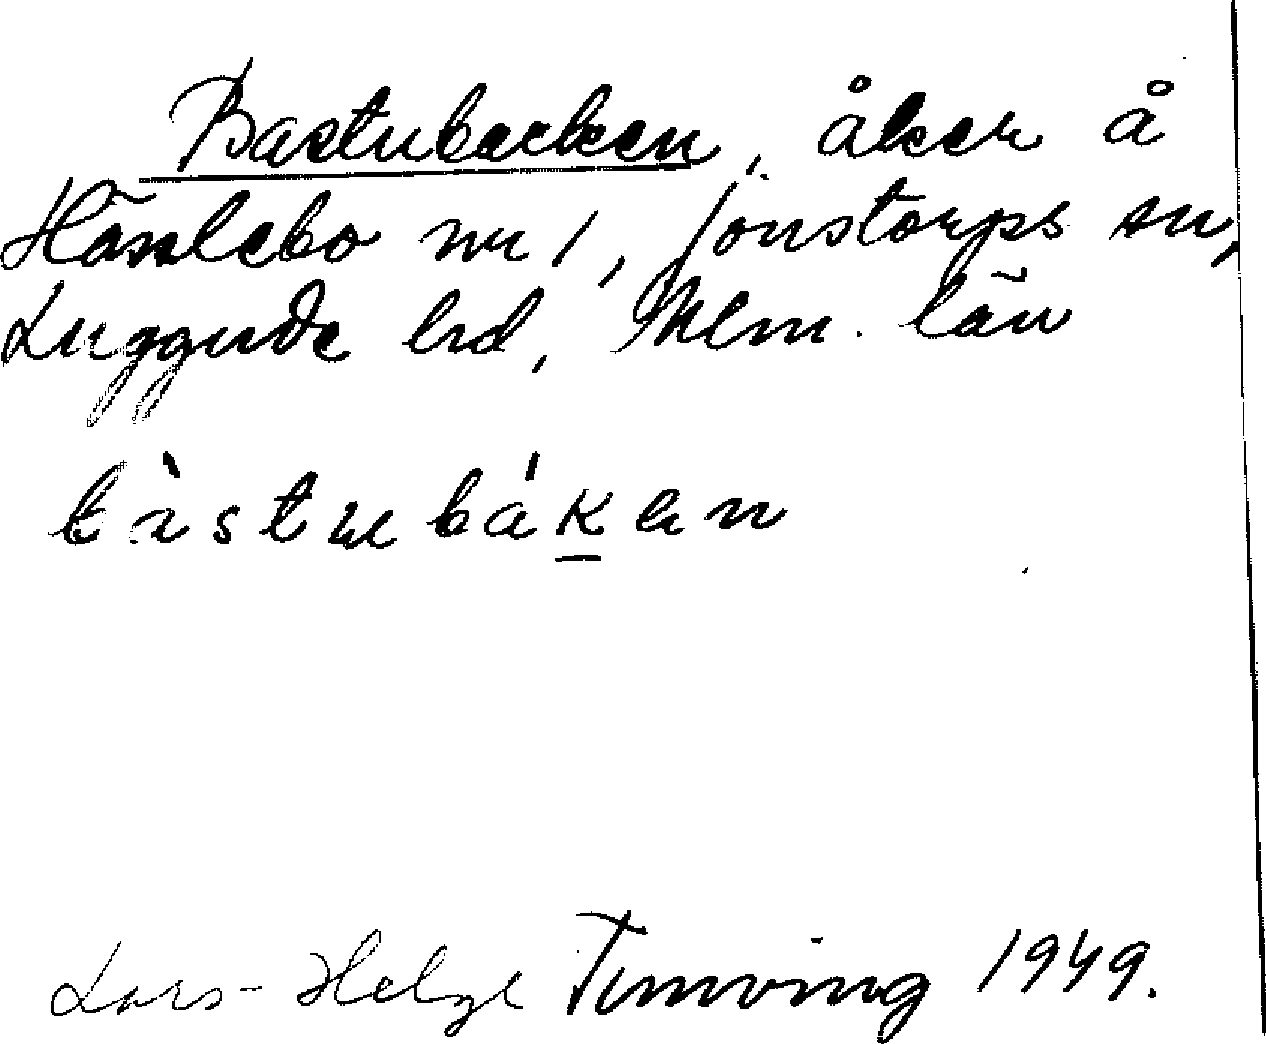 Bastubacken, åker å
Hässlebo nr 1, Jonstorps sn,
Luggude hd, Mlm. län
bàstubáken
Lars-Helge Timving 1949.